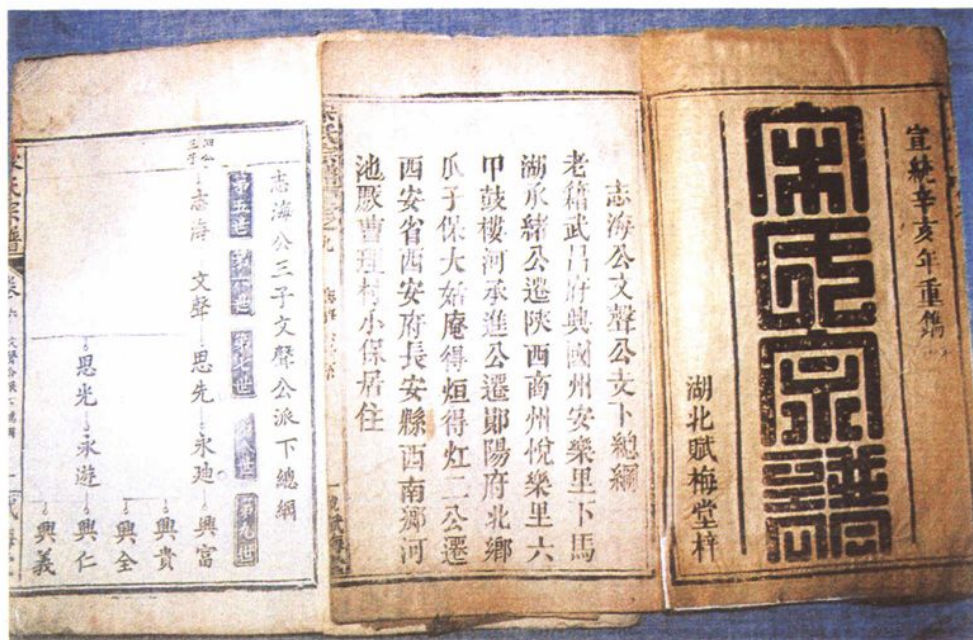 宣統辛亥年重鐫
宋氏宗譜
湖北賦梅堂梓
志海公文聲公支下總綱
老籍武昌府興國州安樂里下馬
湖承緒公遷陝西商州悅樂里六
甲鼓樓河承進公遷鄖陽府北鄉
爪子保大始庵得烜得灴二公遷
西安省西安府長安縣西南鄉河
池厫曹理村小保居住
志海公三子文聲公派下總綱
第五世 第六世 第七世 第八世 第九世
志海 文聲 思先 永廸 興富
興貴
興全
思光 永遊 興仁
興義
宋氏宗譜